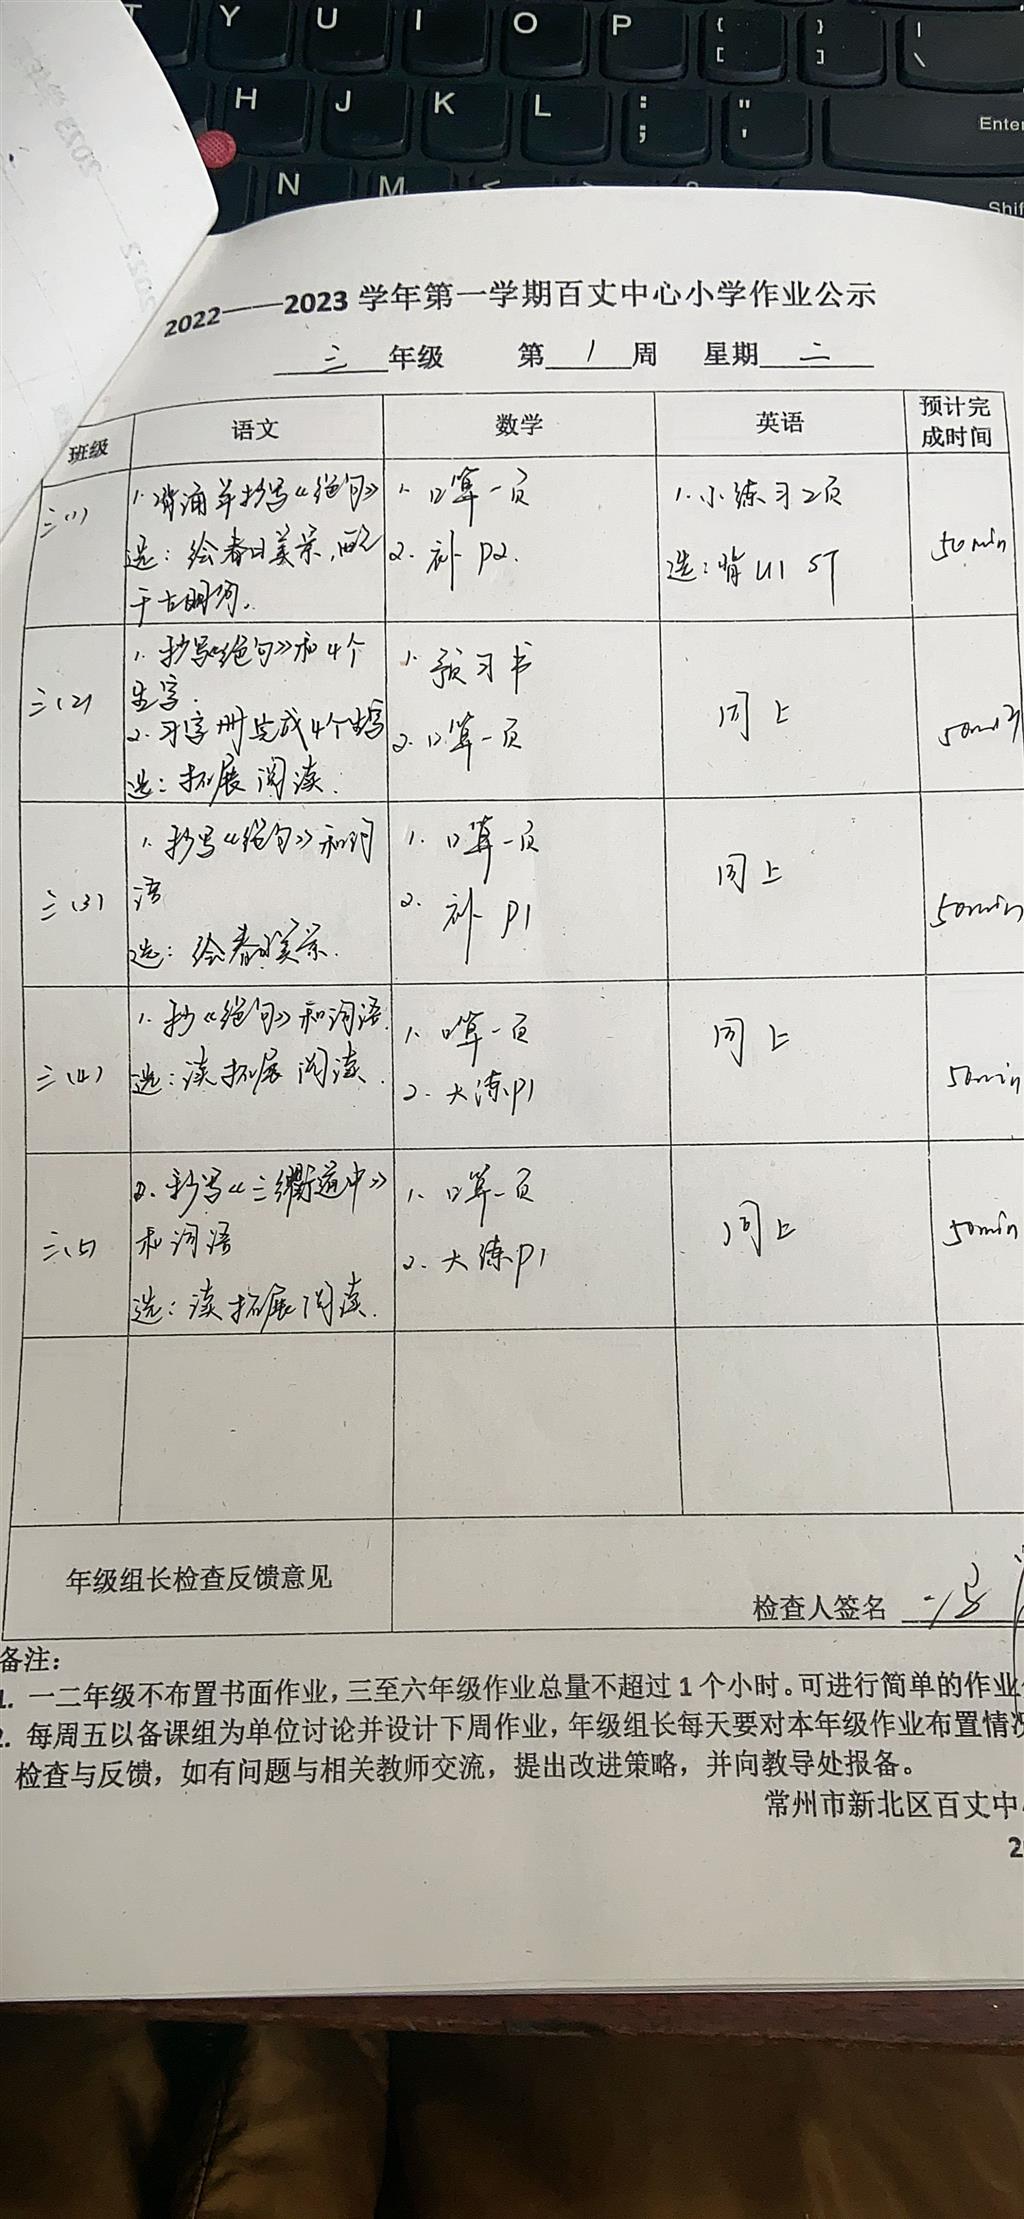 T Y U I O P { [ } ] | \
H J K L : ; " ' Enter
N M < > Shif
2022——2023 学年第一学期百丈中心小学作业公示
三 年级 第 1 周 星期 二
班级 语文 数学 英语 预计完
成时间
三(1)
1. 背诵并抄写《绝句》
选：绘春日美景,配
于古诗词.
1. 口算一页
2. 补 P2.
1. 小练习2页
选：背 U1 ST
50min
三(2)
1. 抄写《绝句》和4个
生字.
2. 习字册完成4个生字
选：拓展阅读.
1. 预习书
2. 口算一页
同上
50min
三(3)
1. 抄写《绝句》和词
语
选：绘春日美景.
1. 口算一页
2. 补 P1
同上
50min
三(4)
1. 抄《绝句》和词语.
选：读拓展阅读.
1. 口算一页
2. 大练P1
同上
50min
三(5)
2. 抄写《三衢道中》
和词语
选：读拓展阅读.
1. 口算一页
2. 大练P1
同上
50min
年级组长检查反馈意见
检查人签名
备注:
1. 一二年级不布置书面作业，三至六年级作业总量不超过 1 个小时。可进行简单的作业
2. 每周五以备课组为单位讨论并设计下周作业，年级组长每天要对本年级作业布置情况
检查与反馈，如有问题与相关教师交流，提出改进策略，并向教导处报备。
常州市新北区百丈中
2